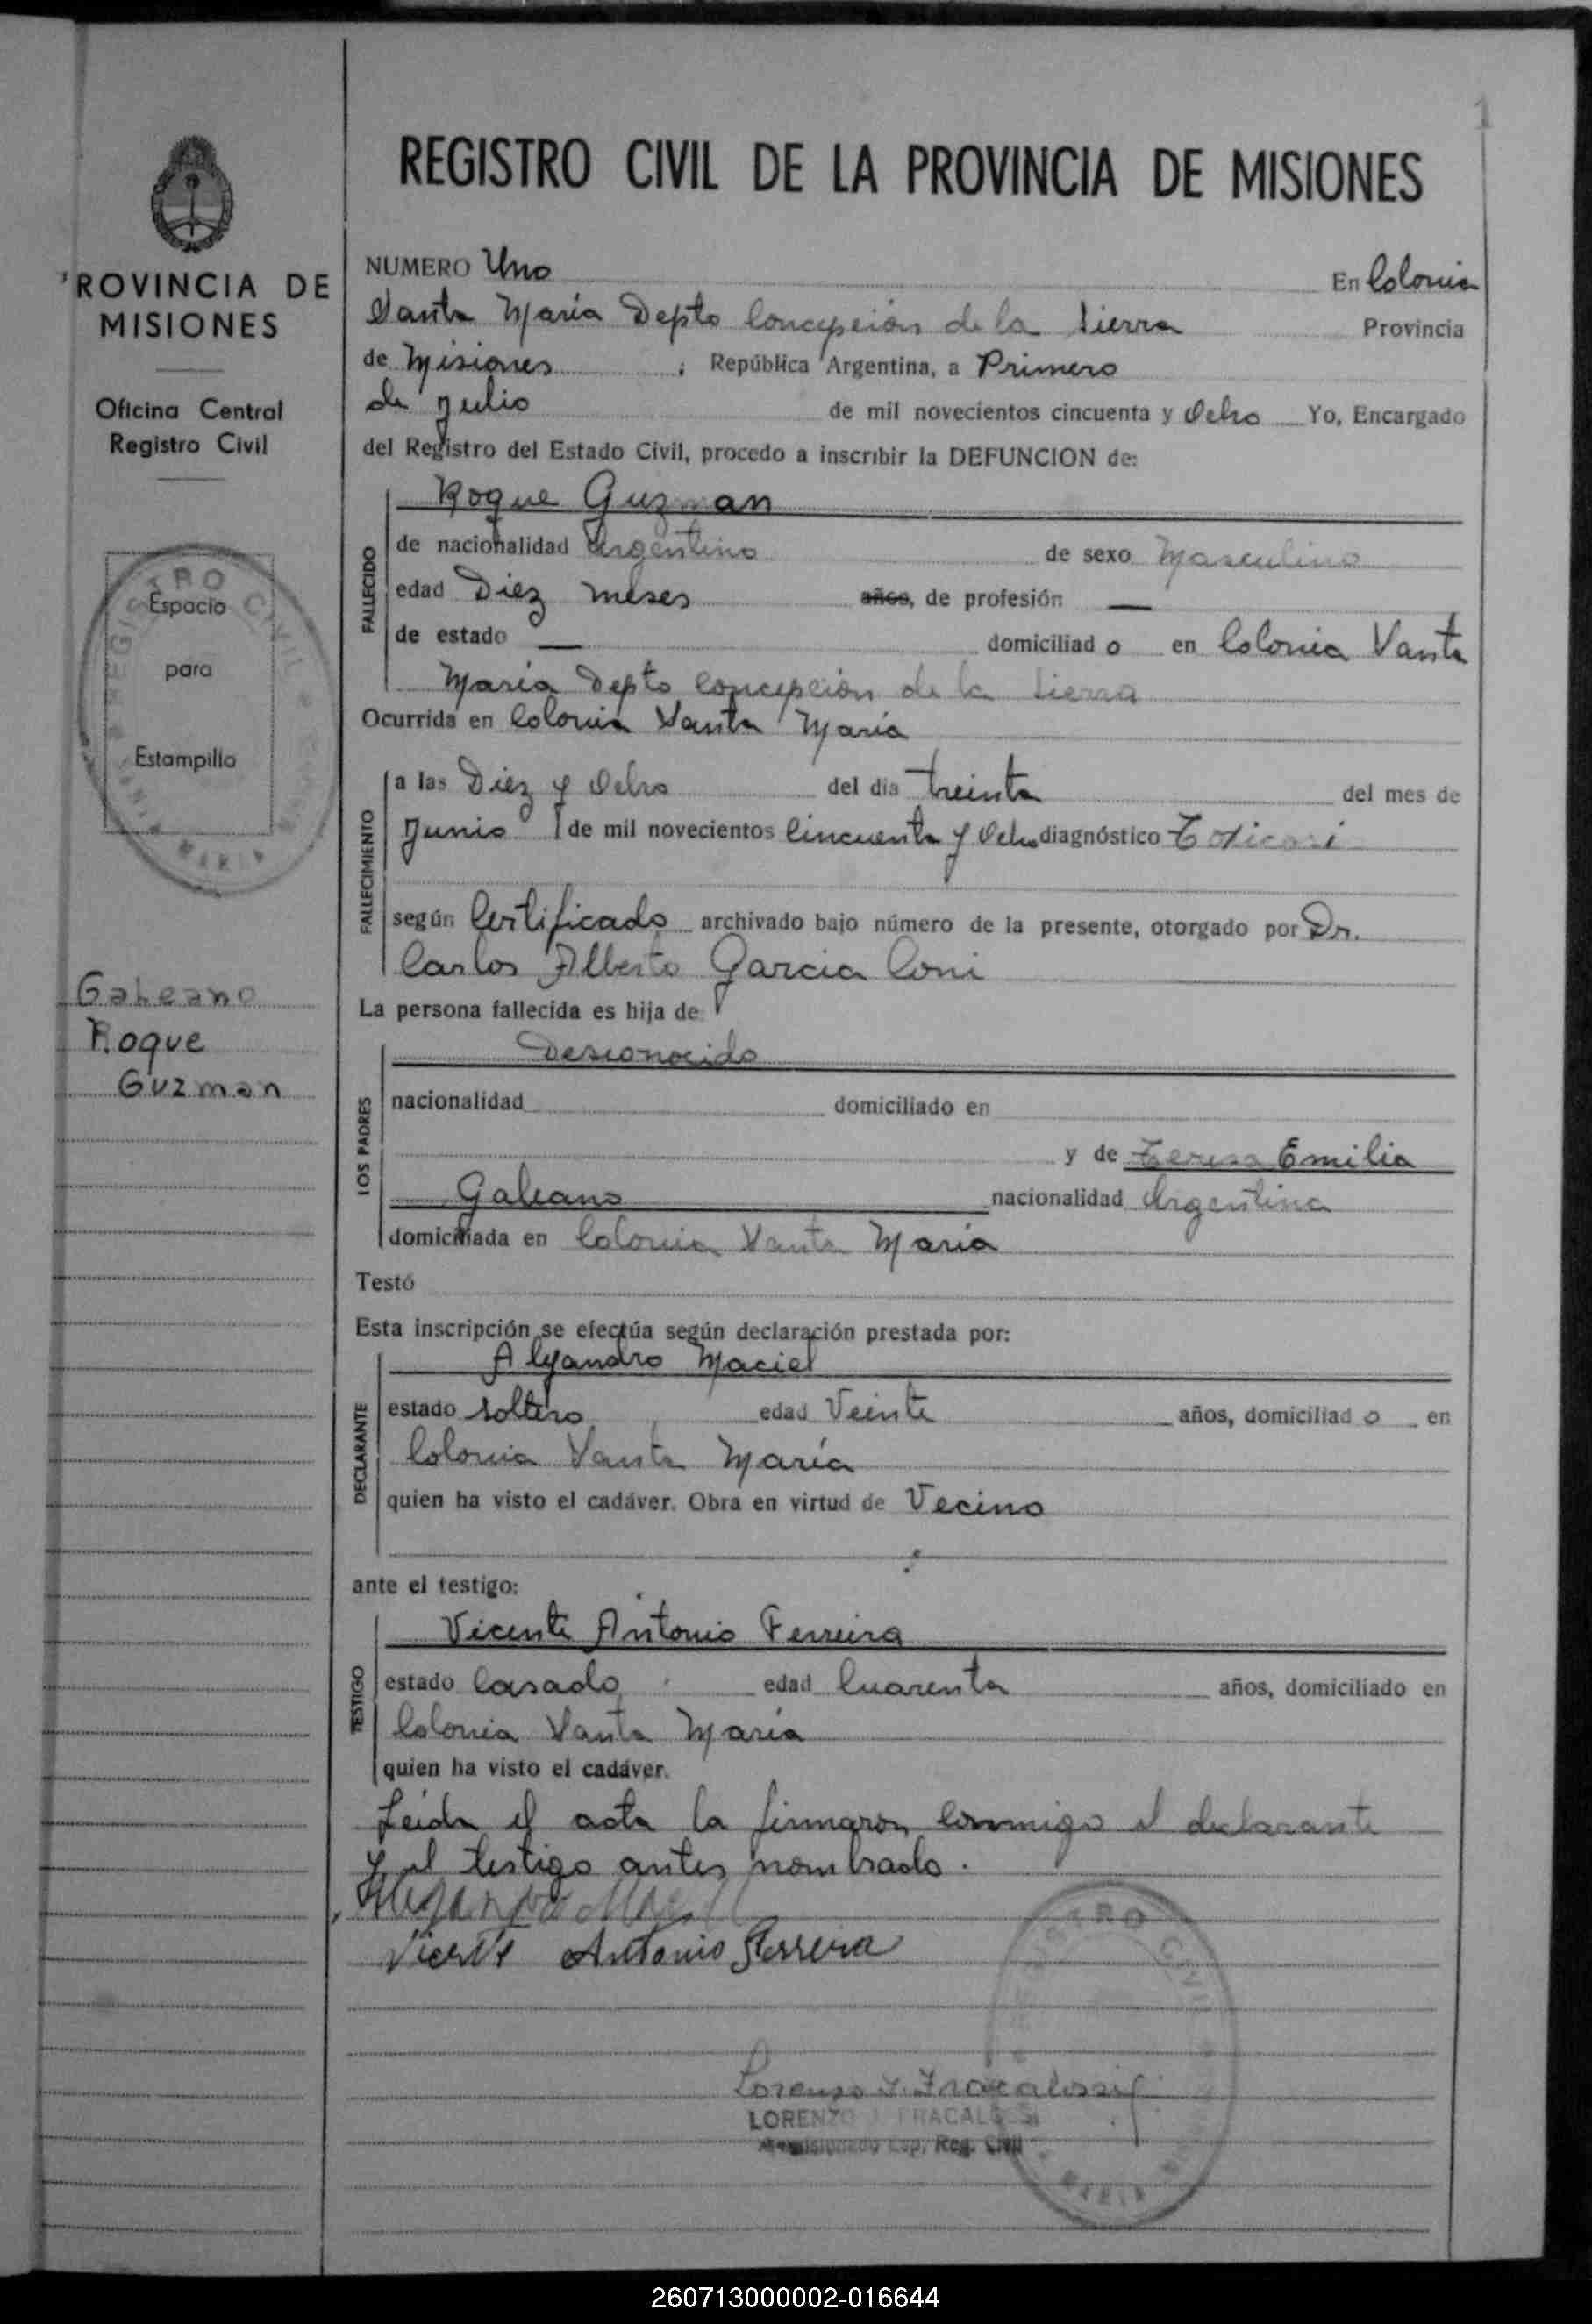 REGISTRO CIVIL DE LA PROVINCIA DE MISIONES
ROVINCIA DE
MISIONES
Oficina Central
Registro Civil
REGISTRO CIVIL
Espacio
para
Estampilla
Galeano
Roque
Guzman
NUMERO Uno En Colonia
Santa María Depto Concepción de la Sierra Provincia
de Misiones ; República Argentina, a Primero
de Julio de mil novecientos cincuenta y Ocho Yo, Encargado
del Registro del Estado Civil, procedo a inscribir la DEFUNCION de:
FALLECIDO
Roque Guzman
de nacionalidad Argentino de sexo Masculino
edad Diez meses años, de profesión —
de estado — domiciliad o en Colonia Santa
María Depto Concepción de la Sierra
Ocurrida en Colonia Santa María
FALLECIMIENTO
a las Diez y Ocho del dia treinta del mes de
Junio de mil novecientos Cincuenta y Ocho diagnóstico
según Certificado archivado bajo número de la presente, otorgado por Dr.
Carlos Alberto Garcia Coni
La persona fallecida es hija de
LOS PADRES
Desconocido
nacionalidad domiciliado en
y de Teresa Emilia
Galeano nacionalidad Argentina
domiciliada en Colonia Santa María
Testó
Esta inscripción se efectúa según declaración prestada por:
DECLARANTE
Alejandro Maciel
estado soltero edad Veinte años, domiciliad o en
Colonia Santa María
quien ha visto el cadáver. Obra en virtud de Vecino
ante el testigo:
TESTIGO
Vicente Antonio Ferreira
estado Casado edad Cuarenta años, domiciliado en
Colonia Santa María
quien ha visto el cadáver.
Leida el acta la firmaron conmigo el declarante
y el testigo antes nombrado.
Alejandro Maciel
Vicente Antonio Ferreira
REGISTRO CIVIL
Lorenzo J. Fracalossi
LORENZO J. FRACALOSSI
Reg. Civil
260713000002-016644